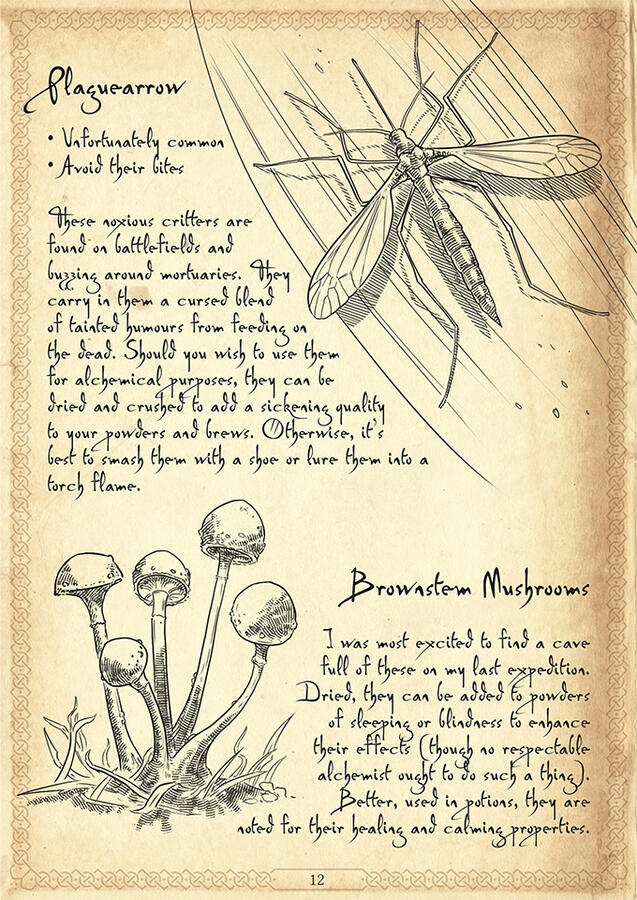 Plaguearrow
• Unfortunately common
• Avoid their bites
These noxious critters are
found on battlefields and
buzzing around mortuaries. They
carry in them a cursed blend
of tainted humours from feeding on
the dead. Should you wish to use them
for alchemical purposes, they can be
dried and crushed to add a sickening quality
to your powders and brews. Otherwise, it's
best to smash them with a shoe or lure them into a
torch flame.
Brownstem Mushrooms
I was most excited to find a cave
full of these on my last expedition.
Dried, they can be added to powders
of sleeping or blindness to enhance
their effects (though no respectable
alchemist ought to do such a thing).
Better, used in potions, they are
noted for their healing and calming properties.
12